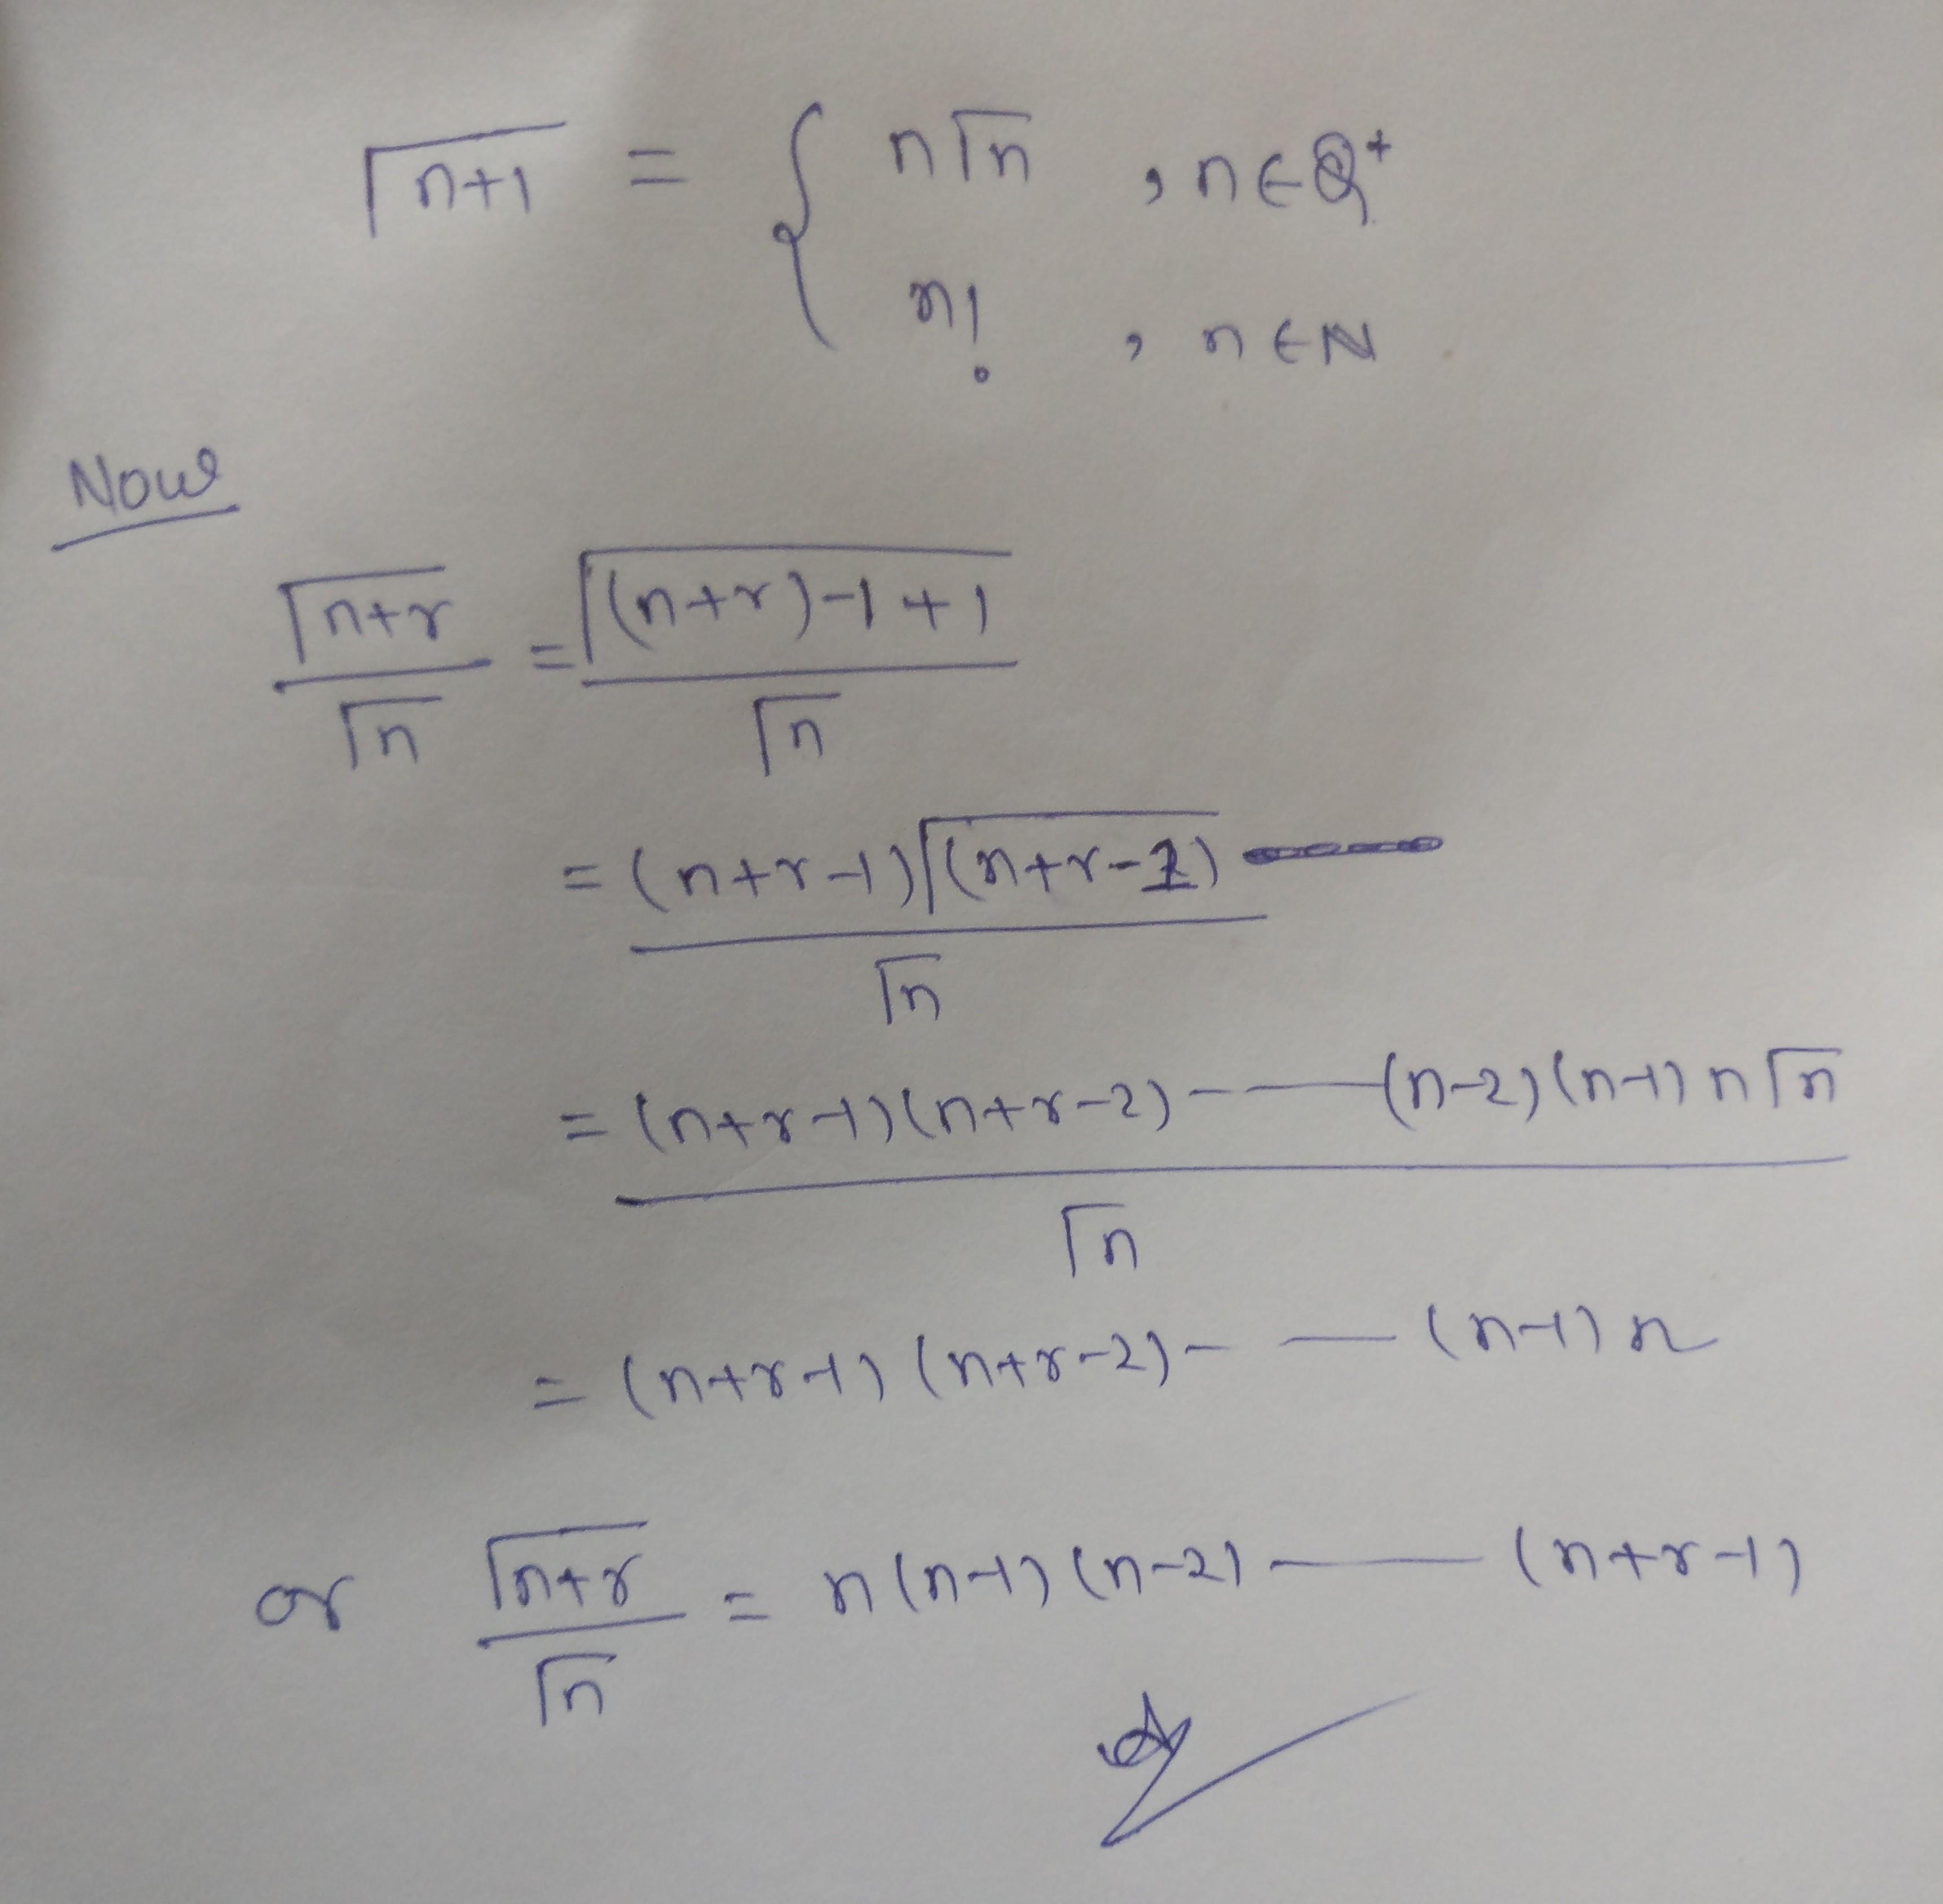 Γn+1 = { nΓn , n∈Q⁺
n! , n∈N
Now
Γn+r / Γn = Γ(n+r)-1+1 / Γn
= (n+r-1)Γ(n+r-1) / Γn
= (n+r-1)(n+r-2)- — (n-2)(n-1)nΓn / Γn
= (n+r-1)(n+r-2)- — (n-1)n
or Γn+r / Γn = n(n-1)(n-2) — (n+r-1)